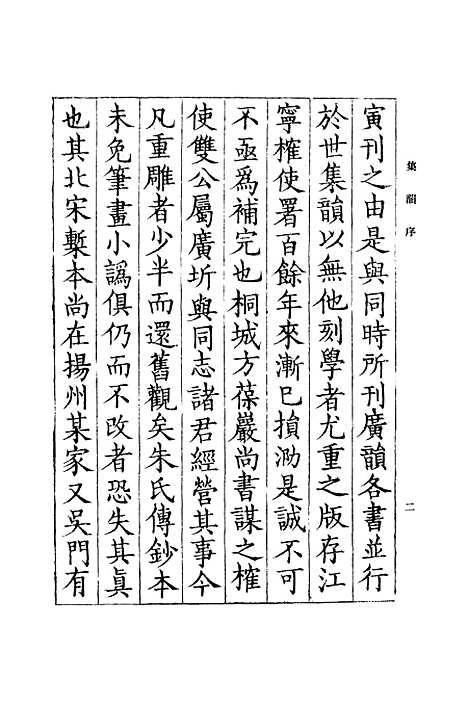 集韻序
二
寅刊之由是與同時所刊廣韻各書並行
於世集韻以無他刻學者尤重之版存江
寧榷使署百餘年來漸已損泐是誠不可
不亟爲補完也桐城方葆巖尚書謀之榷
使雙公屬廣圻與同志諸君經營其事今
凡重雕者少半而還舊觀矣朱氏傳鈔本
未免筆畫小譌俱仍而不改者恐失其眞
也其北宋槧本尚在揚州某家又吳門有